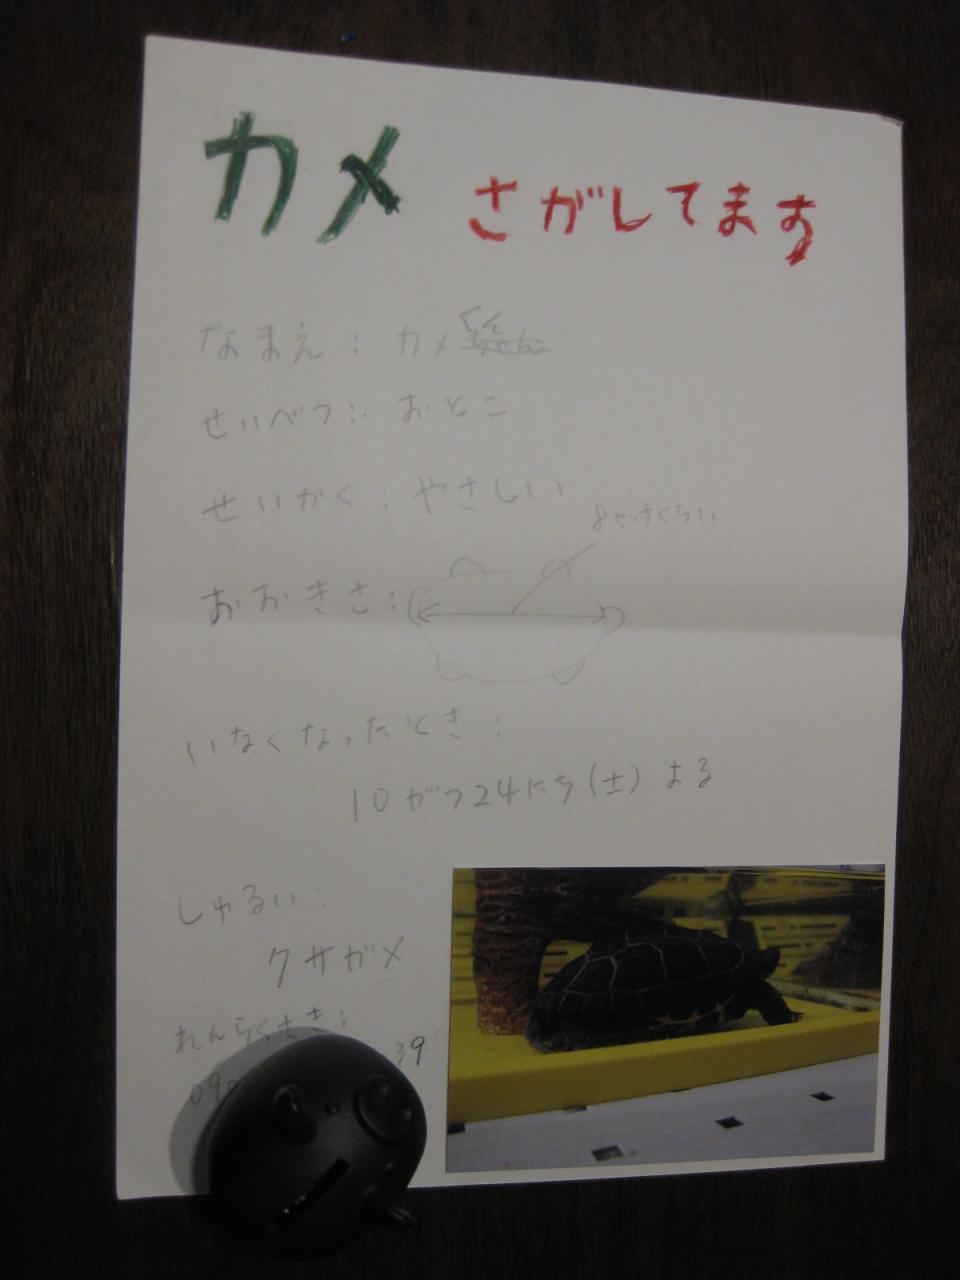 カメ さがしてます
なまえ：カメちゃんくん
せいべつ：おとこ
せいかく：やさしい
8センチくらい
おおきさ：
いなくなったとき：
10がつ24にち(土)よる
しゅるい：
クサガメ
れんらくさき：
090 39